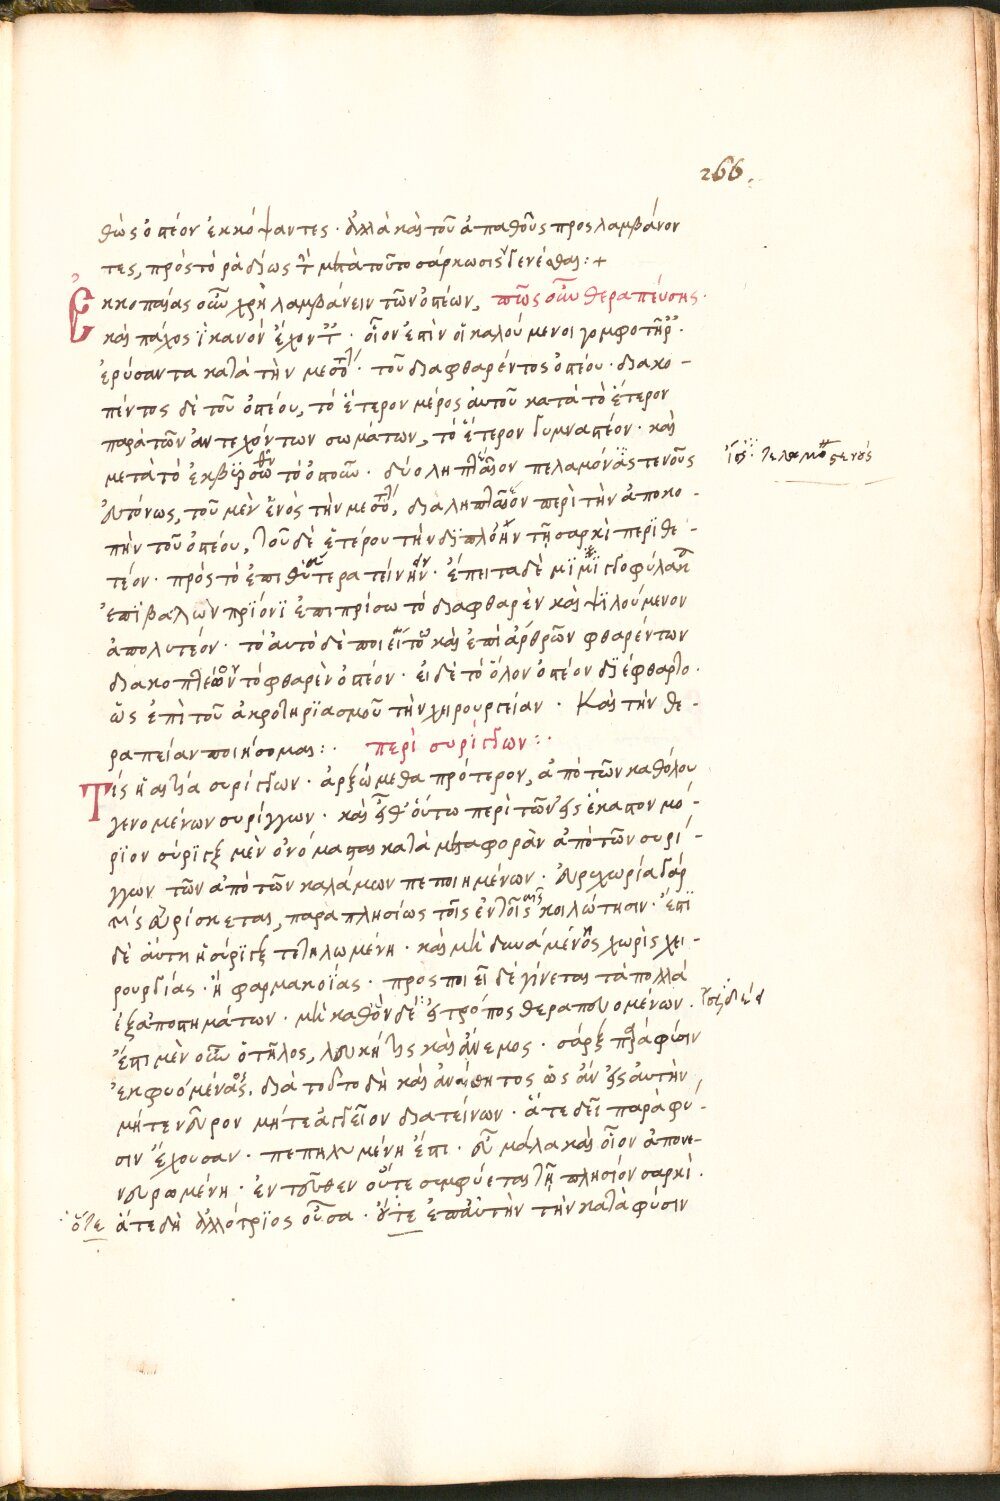 266.
θὼς ὀστέον ἐκκόψαντες · ἀλλὰ καὶ τοῦ ἀπαθοῦς προςλαμβάνον
τες, πρὸς τὸ ῥᾳδίως τὴν μετὰ τοῦτο σάρκωσιν γενέσθαι : +
Ἐκκοπέας οὖν χρὴ λαμβάνειν τῶν ὀστέων, πῶς οὖν θεραπεύσης ·
καὶ πάχος ἱκανὸν ἔχοντ · οἷον ἐστὶν οἱ καλούμενοι γομφοτῆρ ·
ἐρύσαντα κατὰ τὴν μεσότ · τοῦ διαφθαρέντος ὀστέου · διακο -
πέντος δὲ τοῦ ὀστέου, τὸ ἕτερον μέρος αὐτοῦ κατὰ τὸ ἕτερον
παρὰ τῶν ἀντεχόντων σωμάτων, τὸ ἕτερον γυμναστέον · καὶ
μετὰ τὸ ἐκβυρσωθῆν τὸ ὀστοῦν · δύο ληπτέον τελαμόνας στενοὺς
εὐτόνως, τοῦ μὲν ἑνὸς τὴν μεσότ, διαληπτέον περὶ τὴν ἀποκο -
πὴν τοῦ ὀστέου, τοῦ δὲ ἑτέρου τὴν διπλόην τῇ σαρκὶ περιθε -
τέον · πρὸς τὸ ἐπὶ θάτερα τείνην · ἔπειτα δὲ μιμιγγοφύλακ
ἐπιβαλὼν πρίονι ἐπιπρίσω τὸ διαφθαρὲν καὶ ψιλούμενον
ἀπολυτέον · τὸ αὐτὸ δὲ ποιείτω καὶ ἐπὶ ἄρθρων φθαρέντων
διακοπτέον τὸ φθαρὲν ὀστέον · εἰ δὲ τὸ ὅλον ὀστέον διέφθαρτο ·
ὡς ἐπὶ τοῦ ἀκροτηριασμοῦ τὴν χειρουργείαν · Καὶ τὴν θε -
ραπείαν ποιήσομαι : · περὶ συρίγγων : ·
Τίς ἡ αἰτία συρίγγων · ἀρξώμεθα πρότερον, ἀπὸ τῶν καθόλου
γενομένων συρίγγων · καὶ εἶθ' οὕτω περὶ τῶν εἰς ἕκαστον μό -
ριον σύριγξ μὲν ὀνόμασται κατὰ μεταφορὰν ἀπὸ τῶν συρί -
γγων τῶν ἀπὸ τῶν καλάμων πεποιημένων · εὐρυχωρία γάρ
τις εὑρίσκεται, παραπλησίως τοῖς ἐντοῖς κοιλώτησιν · ἔστι
δὲ αὕτη ἡ σύριγξ τετηλωμένη · καὶ μὴ δυναμένος χωρὶς χει -
ρουργίας · ἢ φαρμακοίας · προςποιεῖ δὲ γίνεται τὰ πολλὰ
ἐξ ἀποστημάτων · μὴ καθὸν δέ εἰς τρόπος θεραπευομένων ·
ἔστι μὲν οὖν ὁ τῆλος, λευκή τις καὶ ἄνεμος · σὰρξ παρὰ φύσιν
ἐκφυομένας. διὰ τοῦτο δὴ καὶ ἀναίσθητος ὡς ἂν εἰς αὐτὴν,
μήτε νεῦρον μήτε ἀγγεῖον διατείνων · ἅτε δεῖ παρὰ φύ -
σιν ἔχουσαν · πεπηλυμένη ἔστι · εὖ μάλα καὶ οἷον ἀπονε-
νευρωμένη · ἐντεῦθεν οὔτε συμφύεται τῇ πλησίον σαρκὶ ·
ἅτε δὴ ἀλλότριος οὖσα · οὔτε ἐπ' αὐτὴν τὴν κατὰ φύσιν